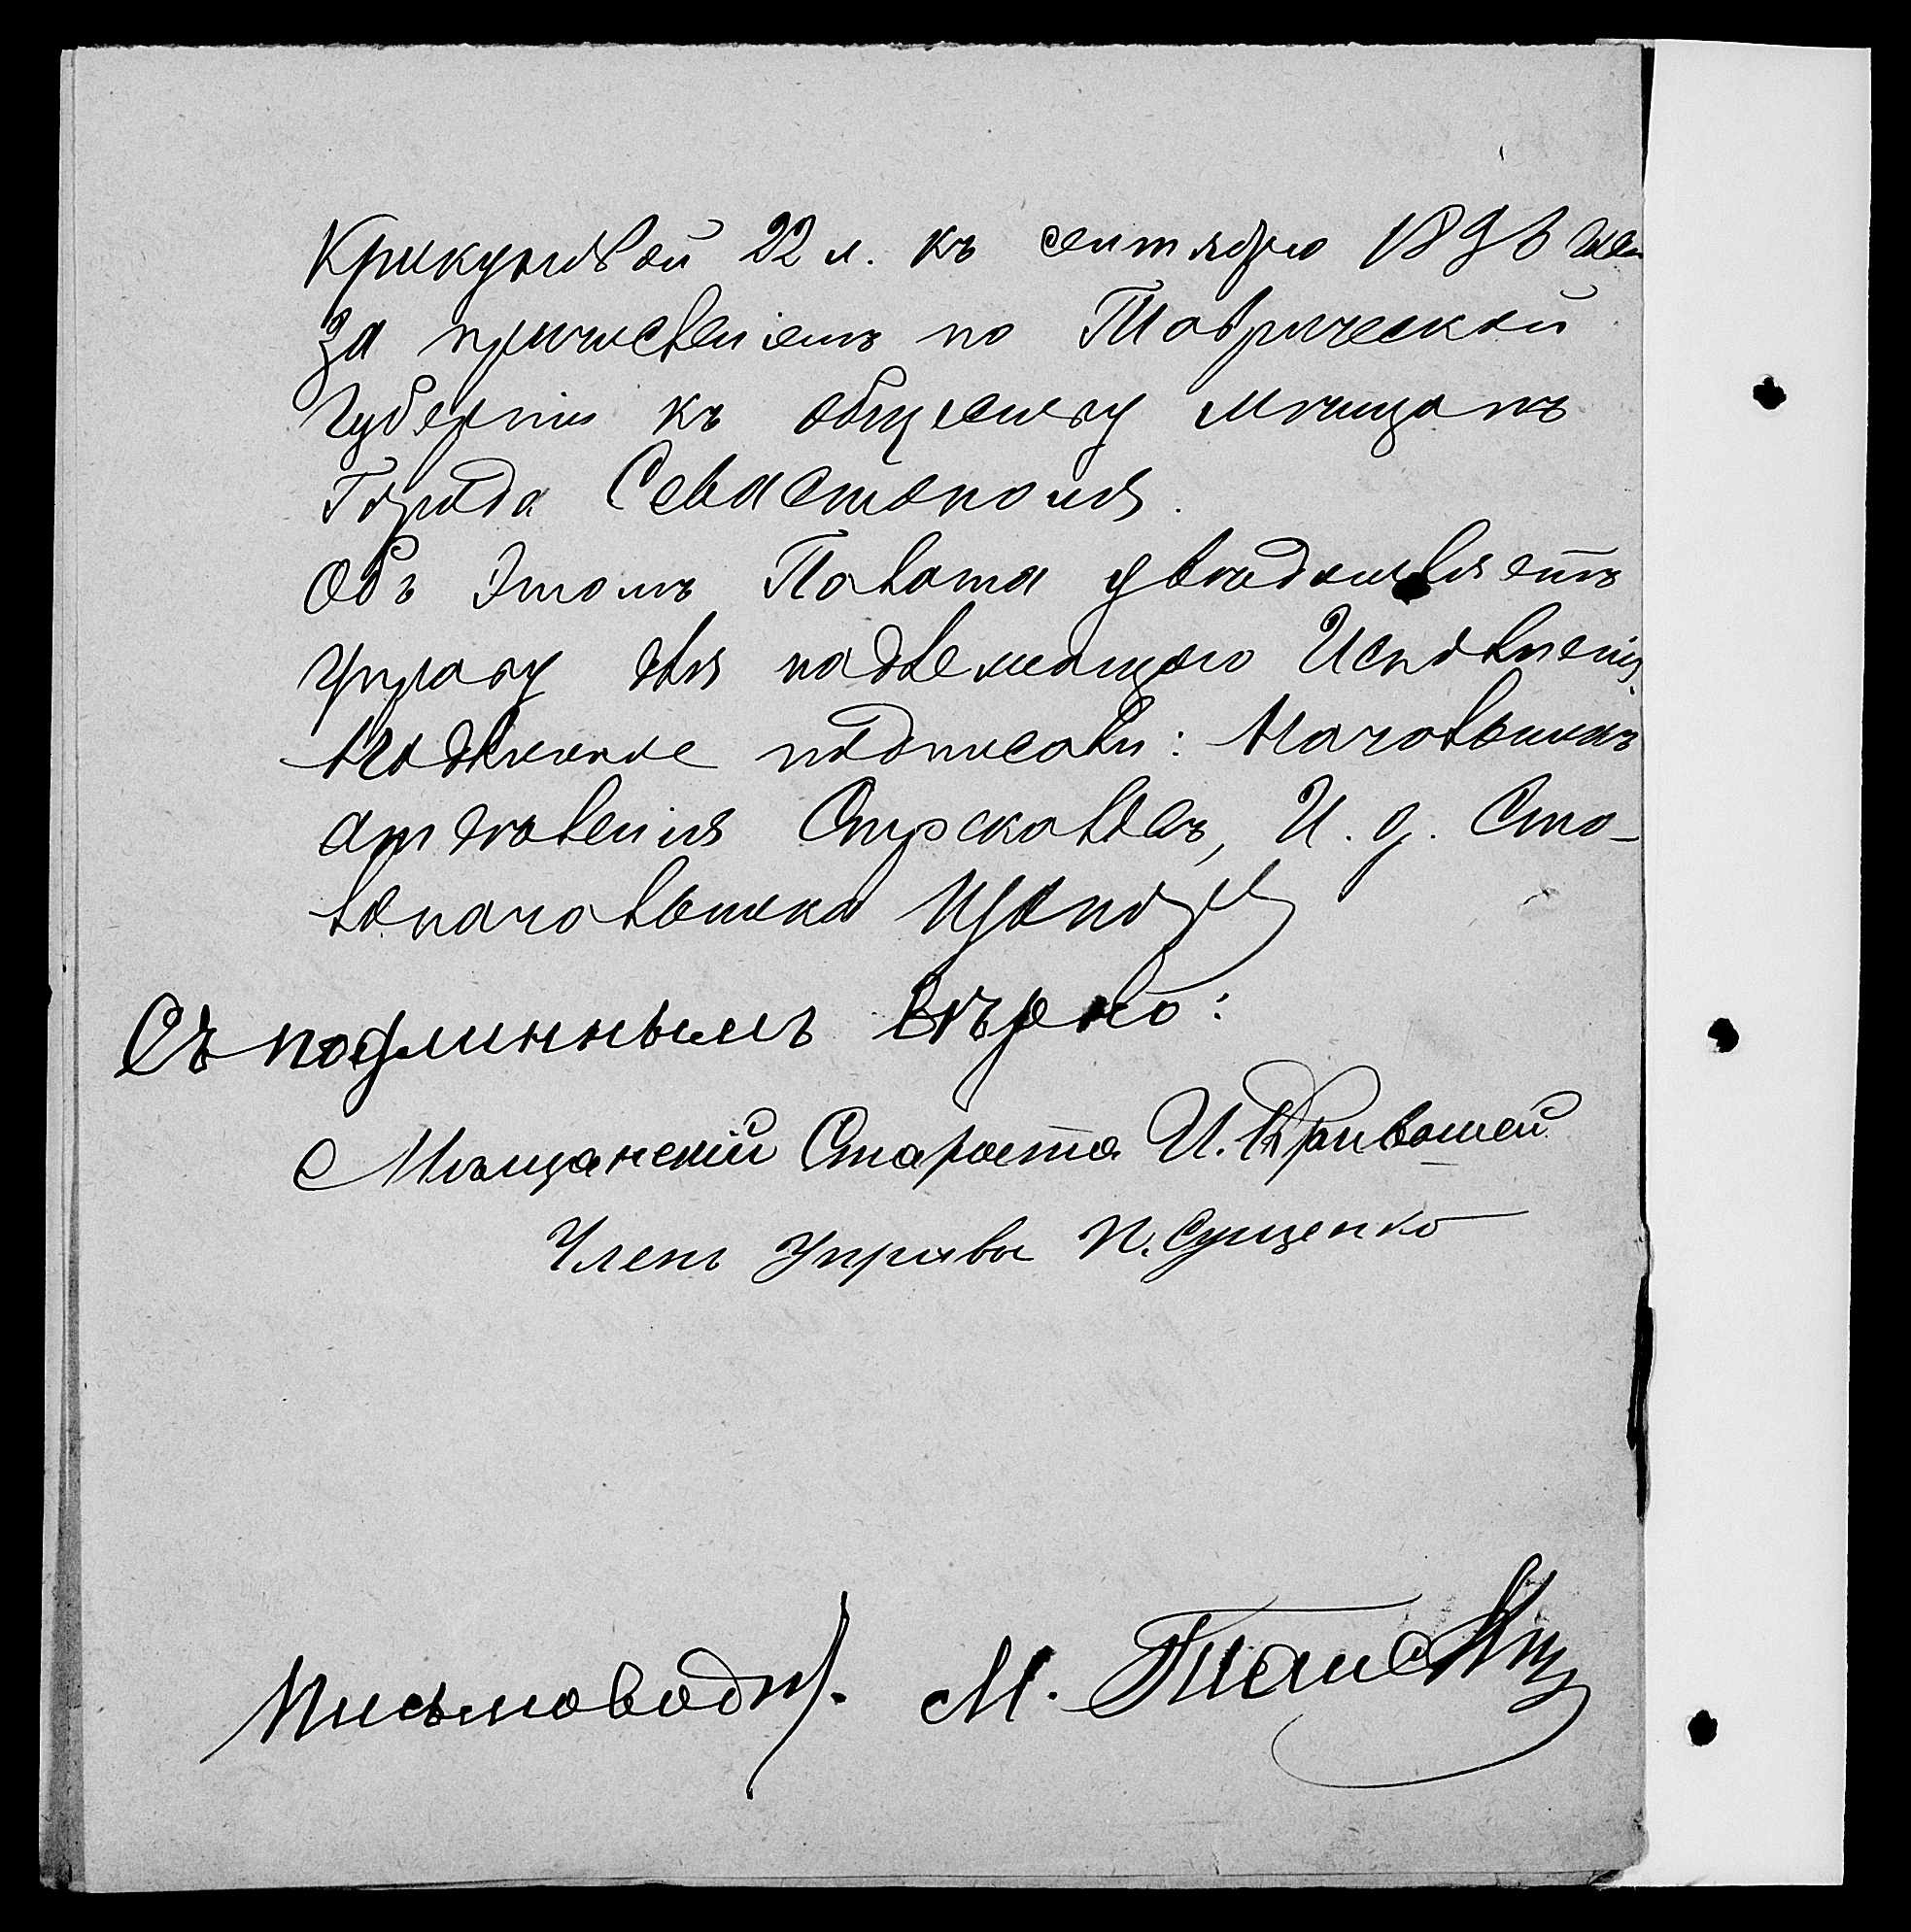 Крикуновой 22 л. къ сентябрю 1896
за причисленіемъ по Таврической
Губерніи къ обществу мѣщанъ
Города Севастополя.
Объ этомъ Палата увѣдомляетъ
Управу для надлежащаго Исполненія.
Подлинное подписали: Начальникъ
отдѣленія И. д. Сто-
лоначальника
Съ подлиннымъ вѣрно:
Мѣщанскій Староста И. Кривошей
Членъ Управы П. Сущенко
Письмоводит. М.